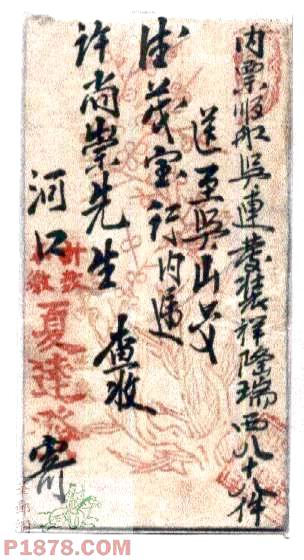 内票收取吳連發裝祥隆瑞西八十八件
送至吳山交
德茂寶行內通
許尚崇先生 查收
河口
夏達
寄
P1878.COM